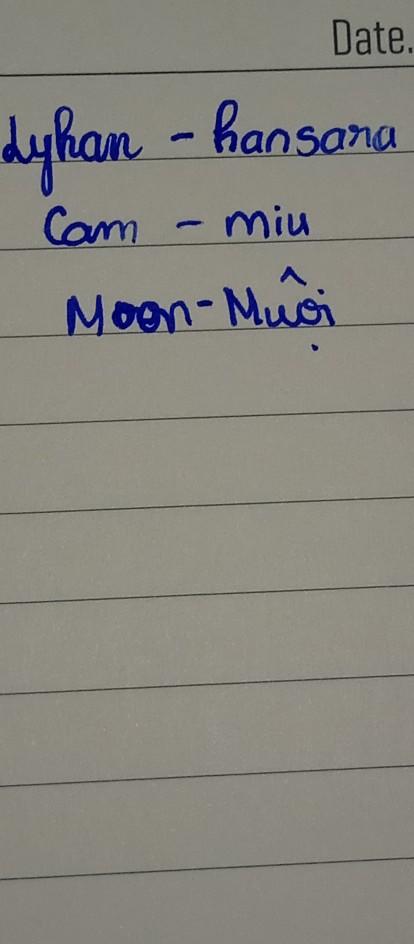 Date.
Lyhan - hansara
Cam - miu
Moon - Muội